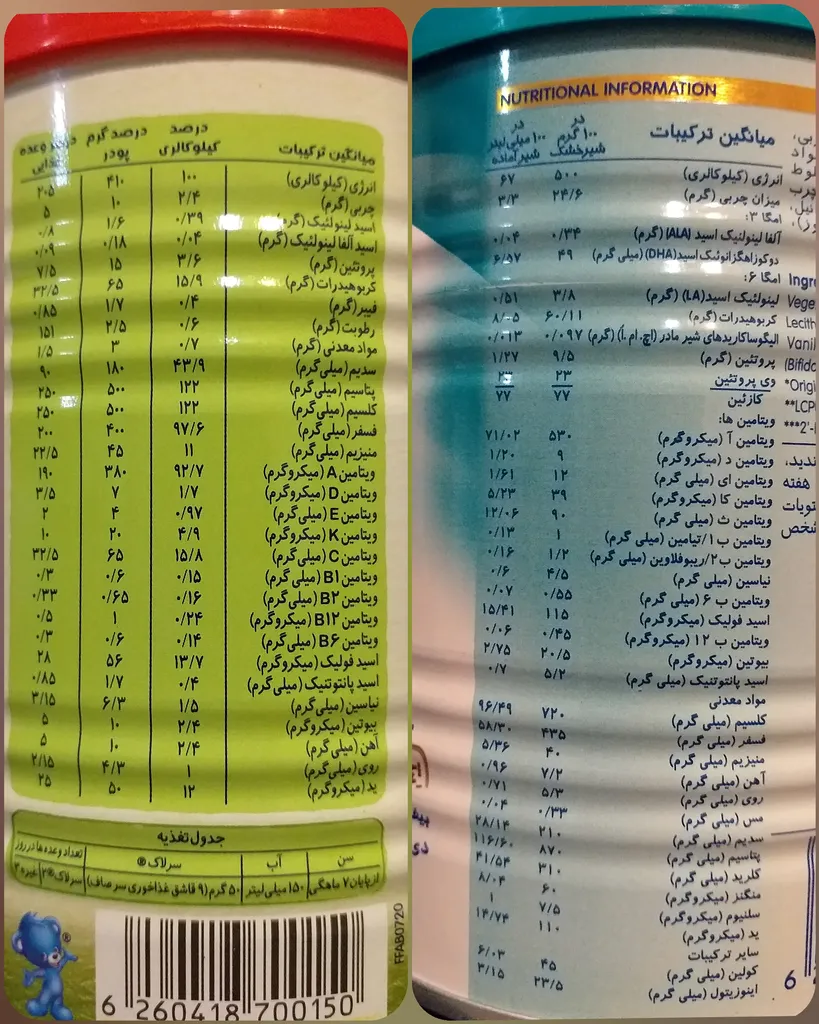 میانگین ترکیبات	درصد کیلوکالری	درصد گرم پودر
انرژی (کیلوکالری)	۱۰۰	۴۱۰	۲۰۵
چربی (گرم)	۲/۴	۱۰	۵
اسید لینولئیک (گرم)	۰/۳۹	۱/۶	۰/۸
اسید آلفا لینولئیک (گرم)	۰/۰۴	۰/۱۸	۰/۰۹
پروتئین (گرم)	۳/۶	۱۵	۷/۵
کربوهیدرات (گرم)	۱۵/۹	۶۵	۳۲/۵
فیبر (گرم)	۰/۴	۱/۷	۰/۸۵
رطوبت (گرم)	۰/۶	۲/۵
مواد معدنی (گرم)	۰/۷	۳	۱/۵
سدیم (میلی گرم)	۴۳/۹	۱۸۰	۹۰
پتاسیم (میلی گرم)	۱۲۲	۵۰۰	۲۵۰
کلسیم (میلی گرم)	۱۲۲	۵۰۰	۲۵۰
فسفر (میلی گرم)	۹۷/۶	۴۰۰	۲۰۰
منیزیم (میلی گرم)	۱۱	۴۵	۲۲/۵
ویتامین A (میکروگرم)	۹۲/۷	۳۸۰	۱۹۰
ویتامین D (میکروگرم)	۱/۷	۷	۳/۵
ویتامین E (میلی گرم)	۰/۹۷	۴	۲
ویتامین K (میکروگرم)	۴/۹	۲۰	۱۰
ویتامین C (میلی گرم)	۱۵/۸	۶۵	۳۲/۵
ویتامین B۱ (میلی گرم)	۰/۱۵	۰/۶	۰/۳
ویتامین B۲ (میلی گرم)	۰/۱۶	۰/۶۵	۰/۳۳
ویتامین B۱۲ (میکروگرم)	۰/۲۴	۱	۰/۵
ویتامین B۶ (میلی گرم)	۰/۱۴	۰/۶	۰/۳
اسید فولیک (میکروگرم)	۱۳/۷	۵۶	۲۸
اسید پانتوتنیک (میلی گرم)	۰/۴	۱/۷	۰/۸۵
نیاسین (میلی گرم)	۱/۵	۶/۳	۳/۱۵
بیوتین (میکروگرم)	۲/۴	۱۰	۵
آهن (میلی گرم)	۲/۴	۱۰	۵
روی (میلی گرم)	۱	۴/۳	۲/۱۵
ید (میکروگرم)	۱۲	۵۰	۲۵
جدول تغذیه
سن	آب	سرلاک®	تعداد وعده ها در روز
از پایان ۷ ماهگی	۱۵۰ میلی لیتر	۵۰ گرم (۹ قاشق غذاخوری سر صاف)
FFAB0720
6 260418 700150
NUTRITIONAL INFORMATION
میانگین ترکیبات	در ۱۰۰ گرم شیرخشک	در ۱۰۰ میلی لیتر شیر آماده
انرژی (کیلوکالری)	۵۰۰	۶۷
میزان چربی (گرم)	۲۴/۶	۳/۳
امگا ۳:
آلفا لینولئیک اسید (ALA) (گرم)	۰/۳۴	۰/۰۴
دوکوزاهگزانوئیک اسید (DHA) (میلی گرم)	۴۹	۶/۵۷
امگا ۶:
لینولئیک اسید (LA) (گرم)	۳/۸	۰/۵۱
کربوهیدرات (گرم)	۶۰/۱۱	۸/۰۵
الیگوساکاریدهای شیر مادر (اچ. ام. اُ) (گرم)	۰/۰۹۷	۰/۰۱۳
پروتئین (گرم)	۹/۵	۱/۲۷
وی پروتئین	۲۳	۲۳
کازئین	۷۷	۷۷
ویتامین ها:
ویتامین آ (میکروگرم)	۵۳۰	۷۱/۰۲
ویتامین د (میکروگرم)	۹	۱/۲۰
ویتامین ای (میلی گرم)	۱۲	۱/۶۱
ویتامین کا (میکروگرم)	۳۹	۵/۲۳
ویتامین ث (میلی گرم)	۹۰	۱۲/۰۶
ویتامین ب ۱/تیامین (میلی گرم)	۱	۰/۱۳
ویتامین ب ۲/ریبوفلاوین (میلی گرم)	۱/۲	۰/۱۶
نیاسین (میلی گرم)	۴/۵	۰/۶
ویتامین ب ۶ (میلی گرم)	۰/۵۵	۰/۰۷
اسید فولیک (میکروگرم)	۱۱۵	۱۵/۴۱
ویتامین ب ۱۲ (میکروگرم)	۰/۴۵	۰/۰۶
بیوتین (میکروگرم)	۲۰/۵	۲/۷۵
اسید پانتوتنیک (میلی گرم)	۵/۲	۰/۷
مواد معدنی
کلسیم (میلی گرم)	۷۲۰	۹۶/۴۹
فسفر (میلی گرم)	۴۳۵	۵۸/۳۰
منیزیم (میلی گرم)	۴۰	۵/۳۶
آهن (میلی گرم)	۷/۲	۰/۹۶
روی (میلی گرم)	۵/۳	۰/۷۱
مس (میلی گرم)	۰/۳۳	۰/۰۴
سدیم (میلی گرم)	۲۱۰	۲۸/۱۴
پتاسیم (میلی گرم)	۸۷۰	۱۱۶/۶۰
کلرید (میلی گرم)	۳۱۰	۴۱/۵۴
منگنز (میکروگرم)	۶۰	۸/۰۴
سلنیوم (میکروگرم)	۷/۵	۱
ید (میکروگرم)	۱۱۰	۱۴/۷۴
سایر ترکیبات
کولین (میلی گرم)	۴۵	۶/۰۳
اینوزیتول (میلی گرم)	۲۳/۵	۳/۱۵
6